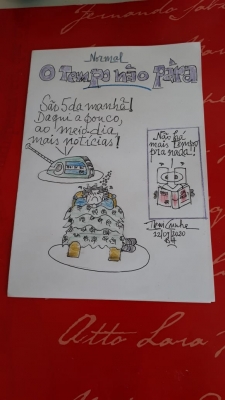 Normal
O Tempo não pára
São 5 da manhã!
Daqui a pouco,
ao meio dia
mais notícias!
Não há
mais tempo
pra nada!
22/09/2020
Atto Lara